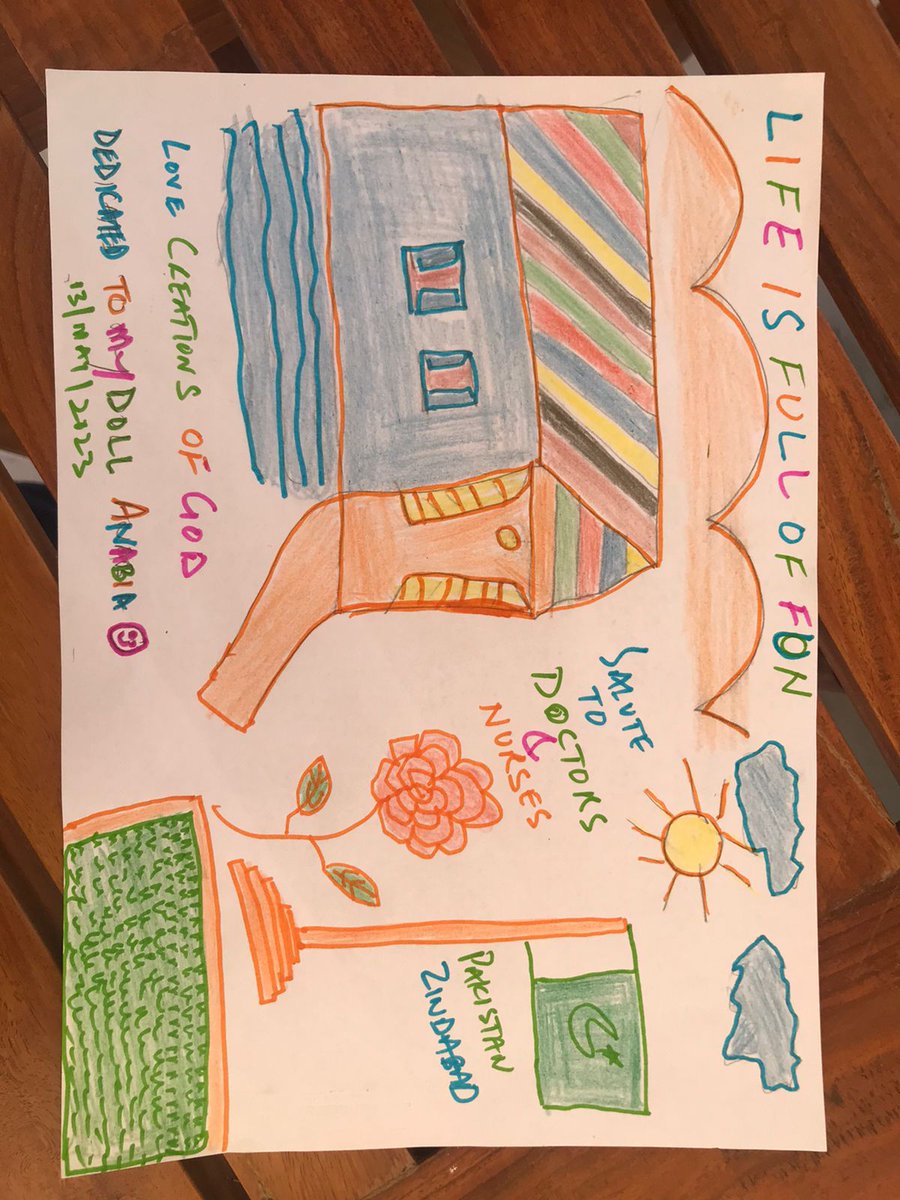 LIFE IS FULL OF FUN
SALUTE
TO
DOCTORS
&
NURSES
PAKISTAN
ZINDABAD
LOVE CREATIONS OF GOD
DEDICATED TO MY DOLL ANABIA
13/MAY/2023